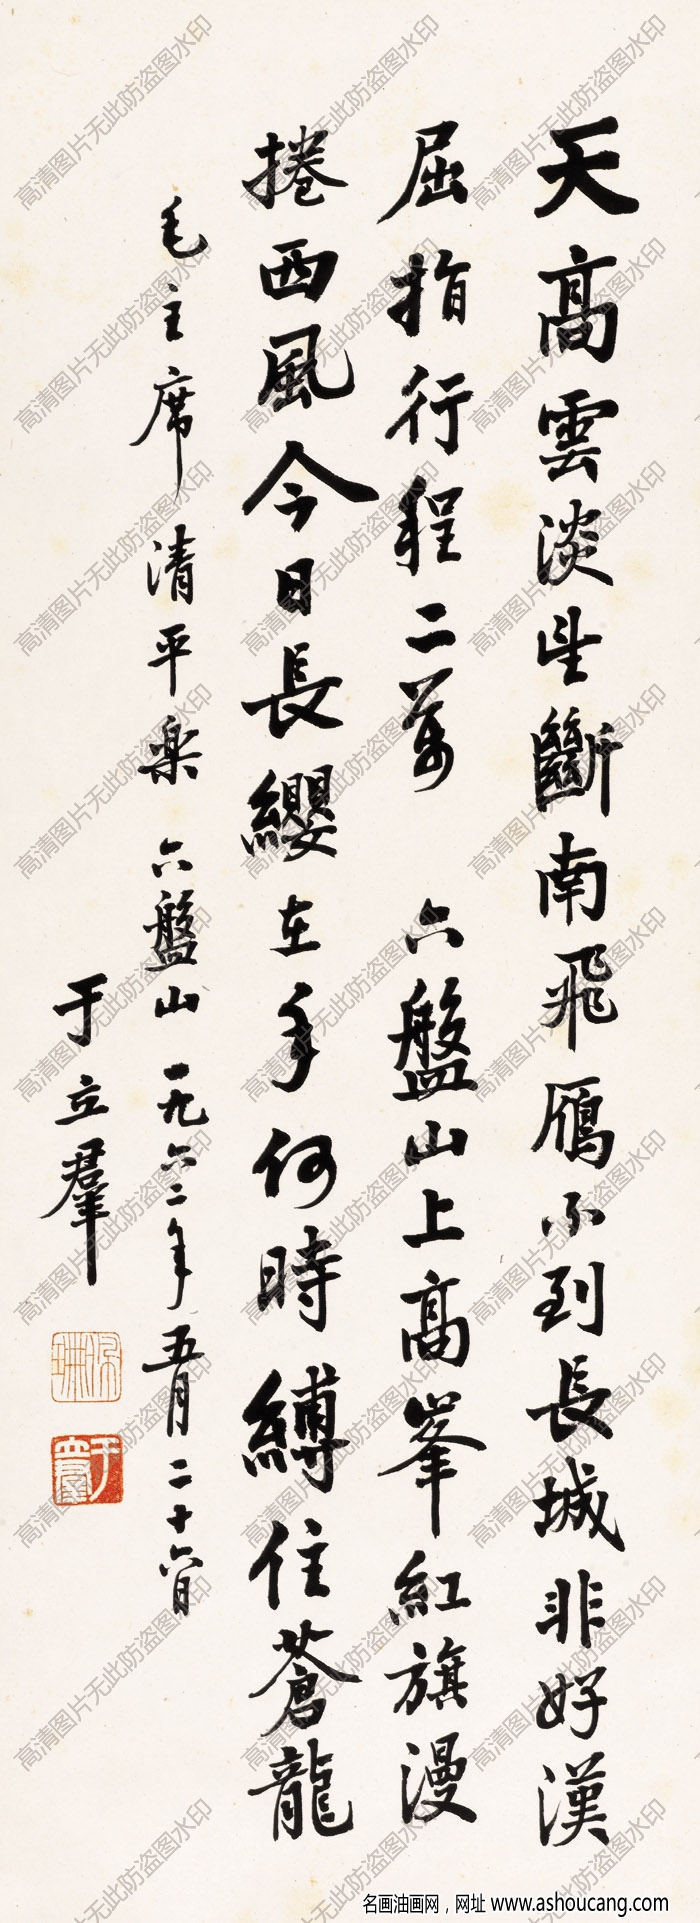 天高雲淡望斷南飛雁不到長城非好漢
屈指行程二萬 六盤山上高峯紅旗漫
捲西風今日長纓在手何時縛住蒼龍
毛主席清平樂 六盤山 一九六二年五月二十六日
于立羣
于立羣
高清图片无此防盗图水印
名画油画网，网址 www.ashoucang.com